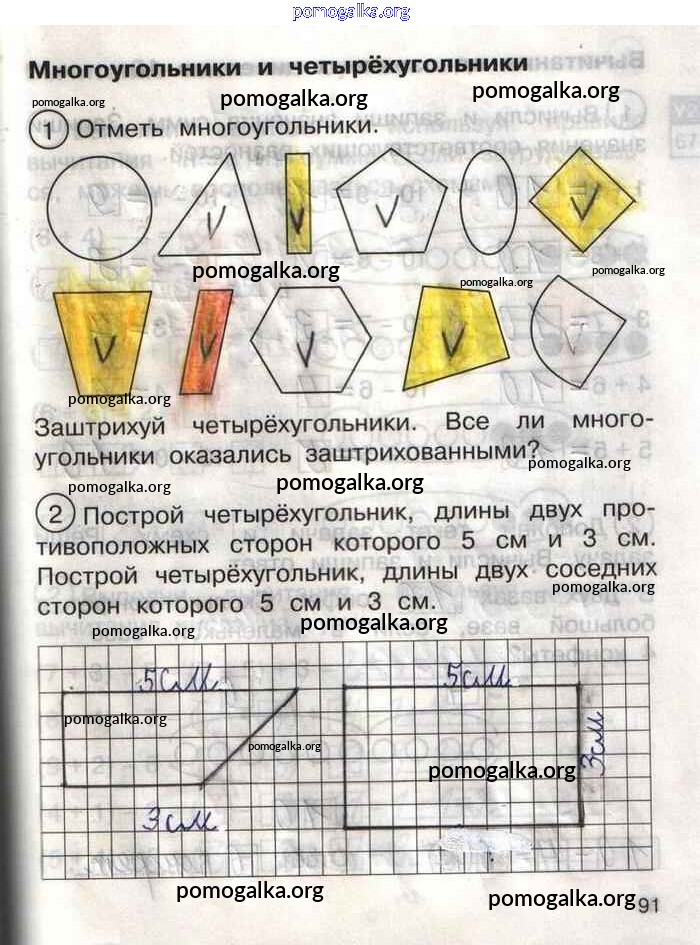 pomogalka.org
Многоугольники и четырёхугольники
pomogalka.org pomogalka.org pomogalka.org
1 Отметь многоугольники.
V V V V V
pomogalka.org pomogalka.org pomogalka.org
V V V V V
pomogalka.org
Заштрихуй четырёхугольники. Все ли много-
угольники оказались заштрихованными?
pomogalka.org
pomogalka.org pomogalka.org
2 Построй четырёхугольник, длины двух про-
тивоположных сторон которого 5 см и 3 см.
Построй четырёхугольник, длины двух соседних
pomogalka.org
сторон которого 5 см и 3 см.
pomogalka.org pomogalka.org
5см 5см
pomogalka.org
pomogalka.org 3см
pomogalka.org
3см
pomogalka.org pomogalka.org
91